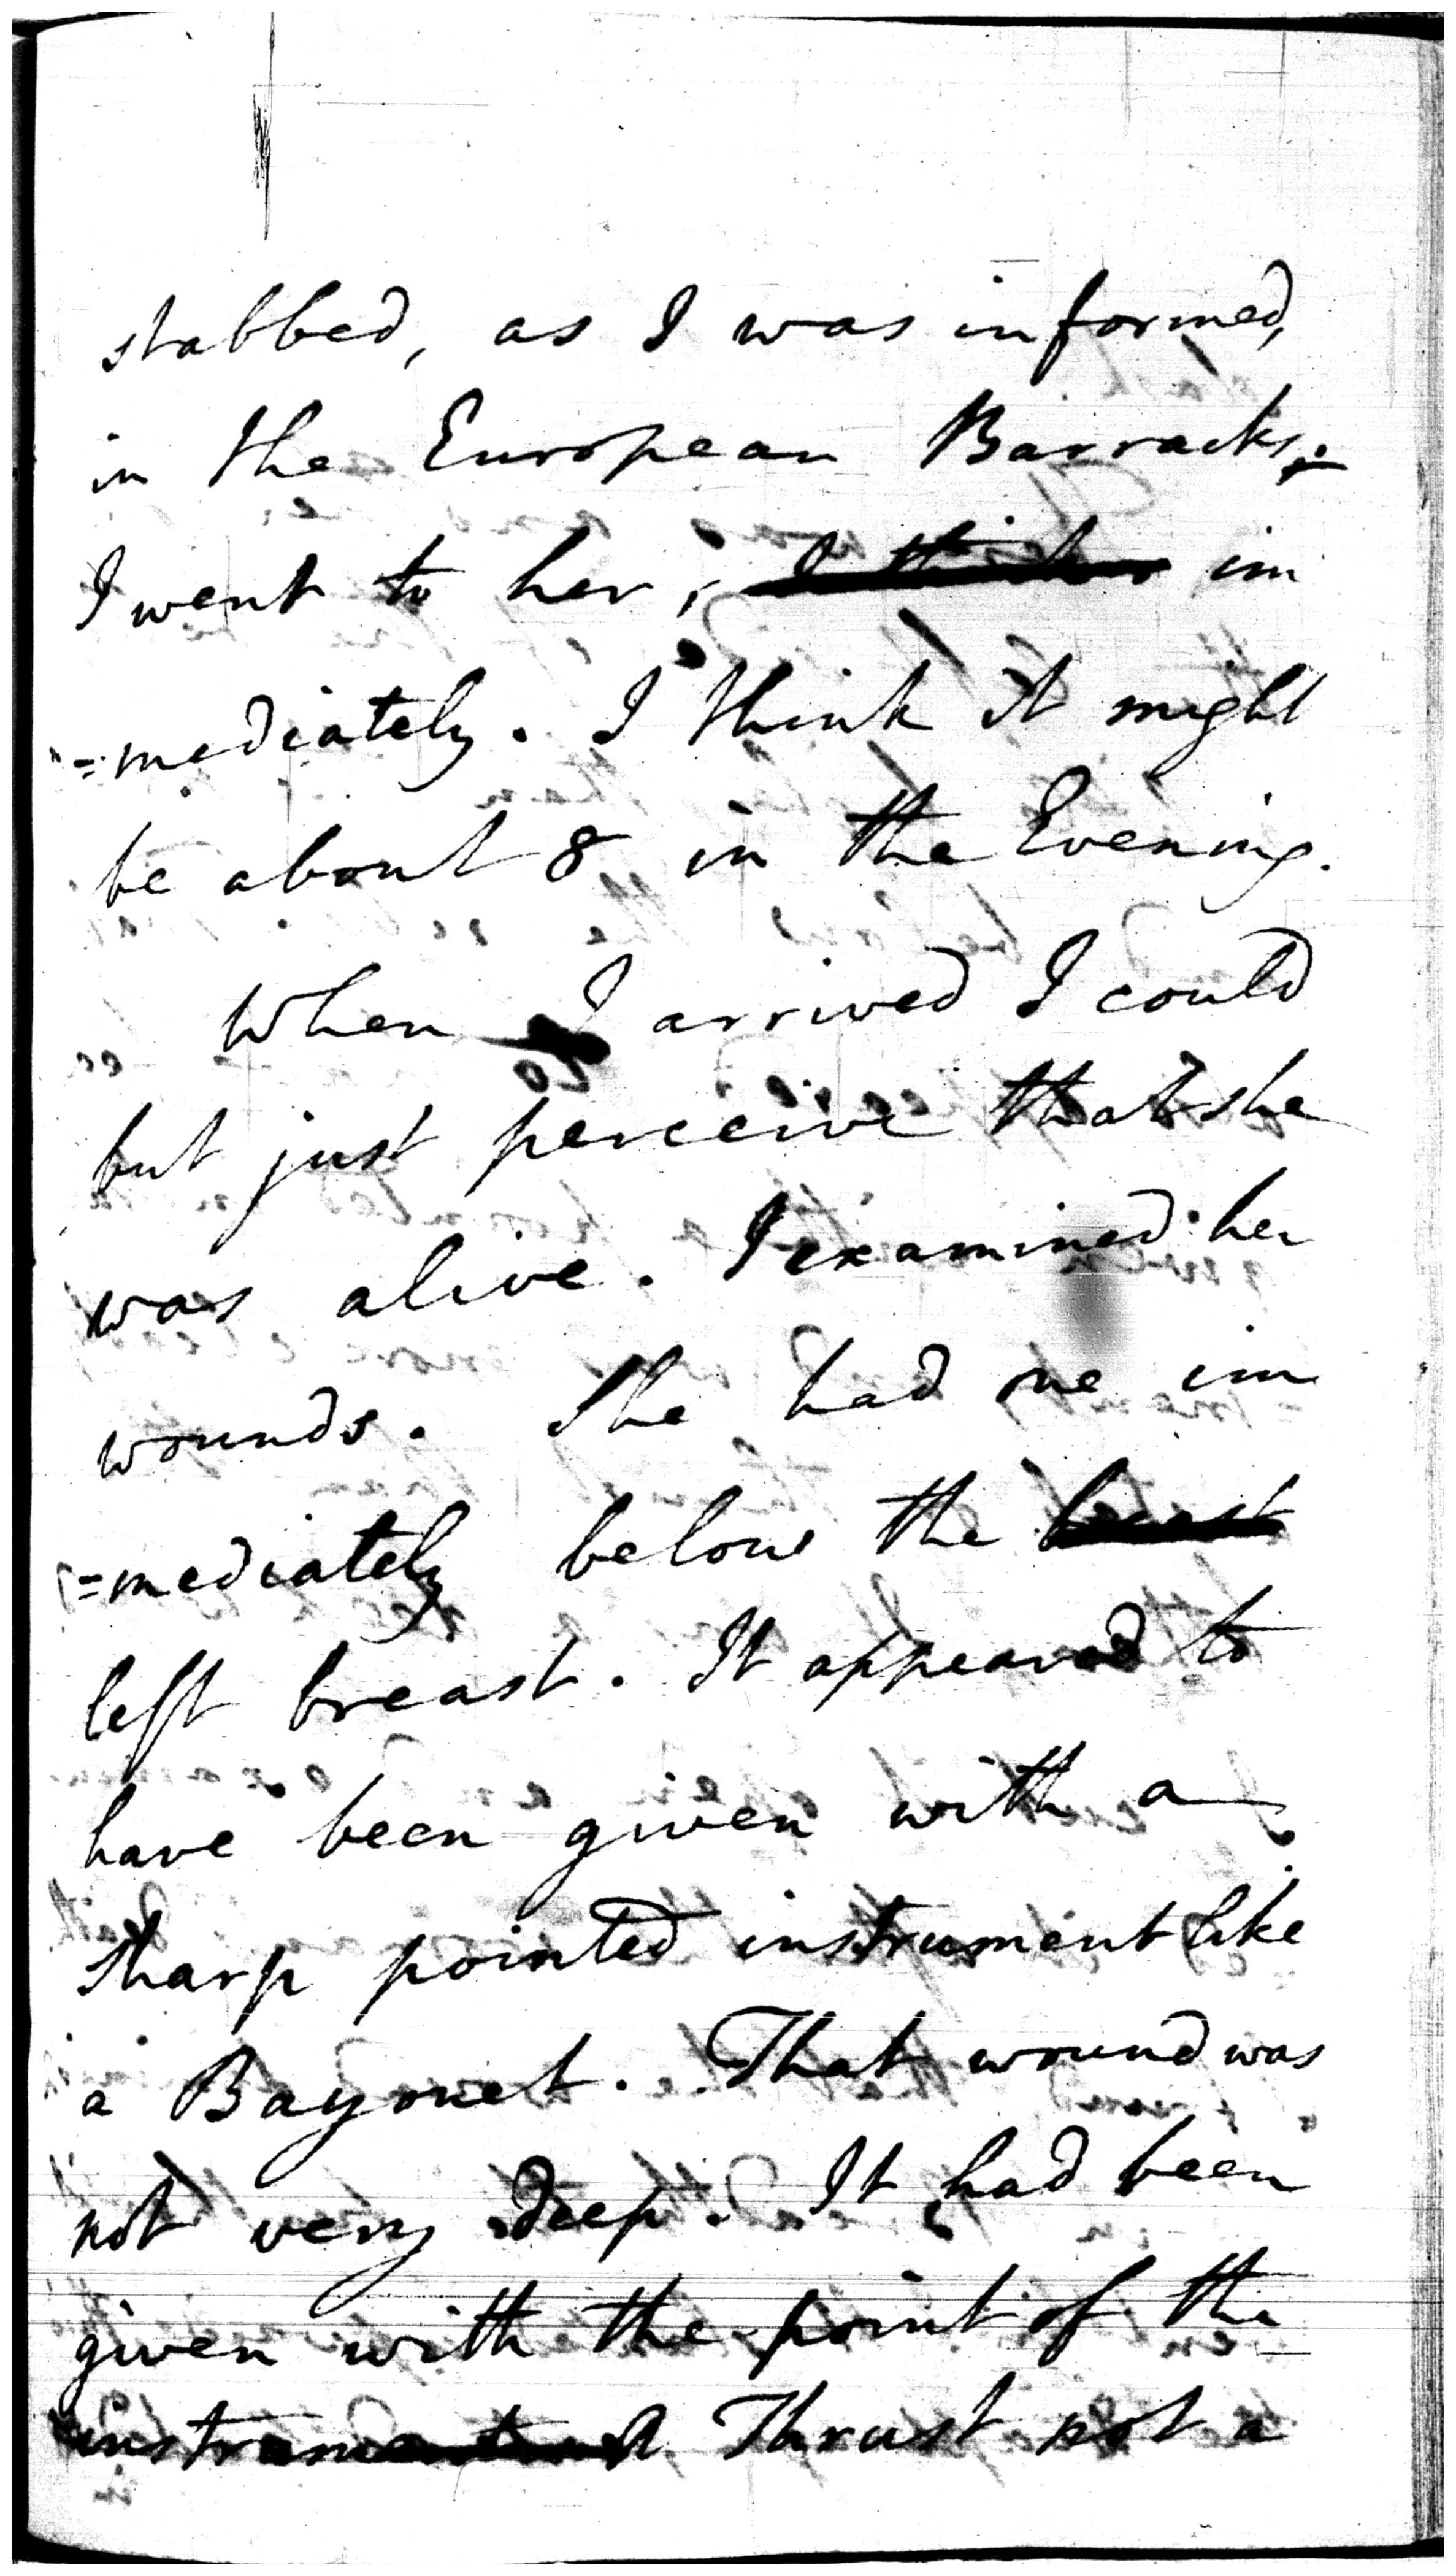 stabbed, as I was informed,
in the European Barracks.
I went to her, im
=mediately. I think it might
be about 8 in the Evening.
When I arrived I could
but just perceive that she
was alive. I examined her
wounds. She had one im
=mediately below the breast
left breast. It appeared to
have been given with a
sharp pointed instrument like
a Bayonet. That wound was
not very deep. It had been
given with the point of the
instrument A Thrust not a